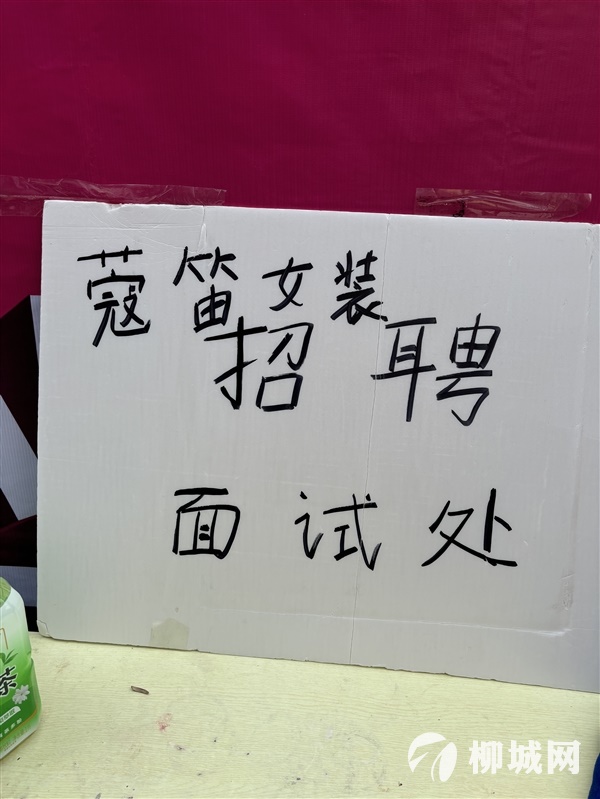 蔻笛女装
招聘
面试处
茶
柳城网